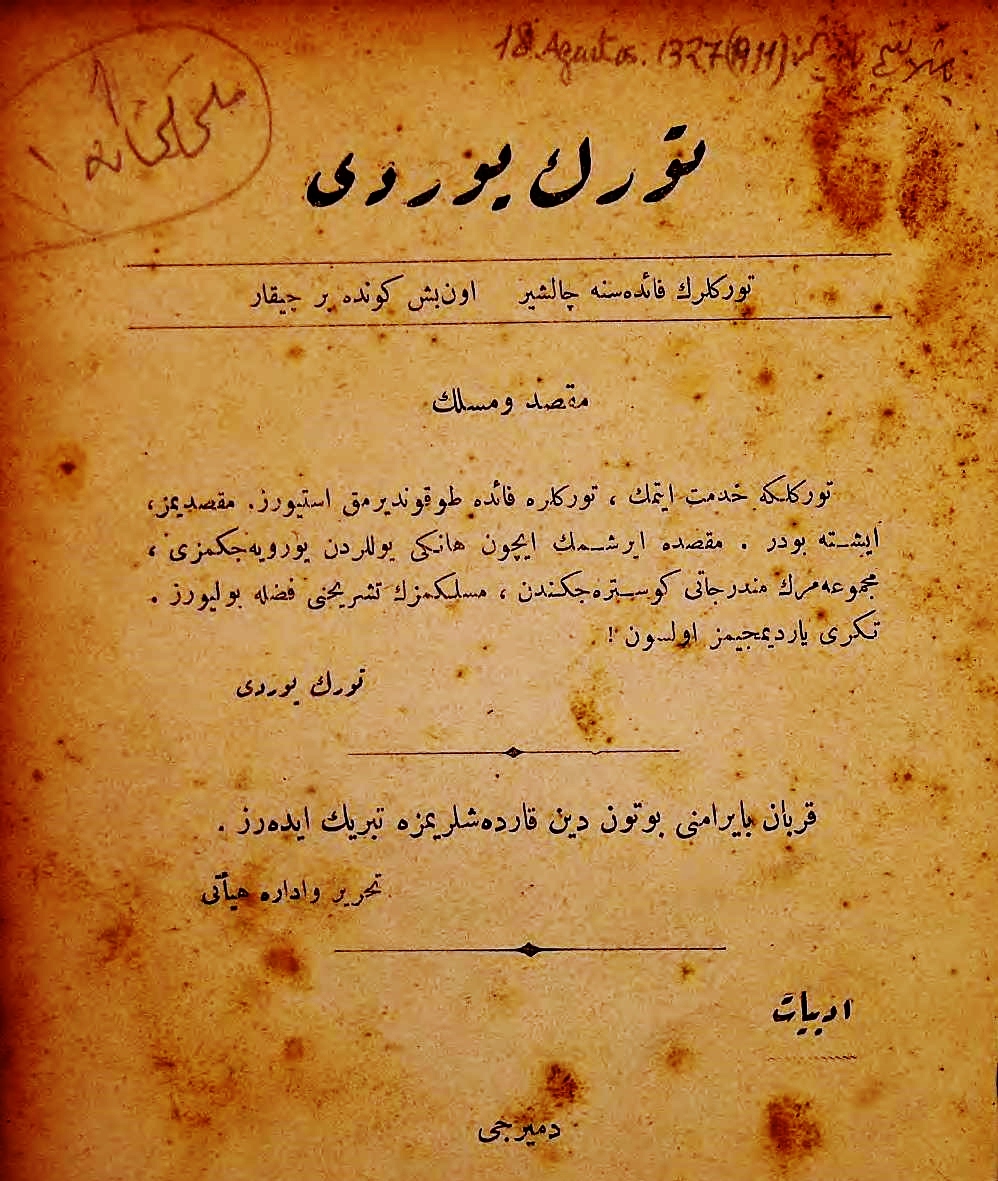 18 Agustos. 1327 (911)
تورك يوردى
توركلرك فائده‌سنه چالشير اون بش كونده بر چيقار
مقصد ومسلك
توركلكه خدمت ايتمك ، توركلره فائده طوقونديرمق استيورز. مقصديمز،
ايشته بودر . مقصده ايرشمك ايچون هانكى يوللردن يورويه‌جكمزى ،
مجموعه‌مزك مندرجاتى كوستره‌جكندن ، مسلكمزك تشريحنى فضله بوليورز .
تكرى يارديمجيمز اولسون !
تورك يوردى
قربان بايرامنى بوتون دين قارده‌شلريمزه تبريك ايده‌رز .
تحرير واداره هيأتى
ادبيات
دميرجى